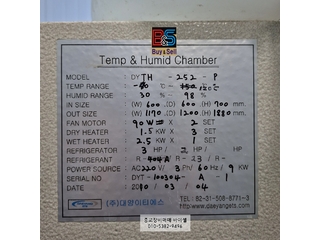 B&S
Buy&Sell
Temp & Humid Chamber
MODEL : DYTH - 252 - P
TEMP RANGE : -40 ℃ ~ 150 ℃
HUMID RANGE : 30 % ~ 98 %
IN SIZE : (W) 600 (D) 600 (H) 900 mm
OUT SIZE : (W) 1190 (D) 1200 (H) 1880 mm
FAN MOTOR : 90W × 2 SET
DRY HEATER : 1.5 KW × 3 SET
WET HEATER : 2.5 KW × 1 SET
REFRIGERATOR : 3 HP / 2 HP
REFRIGERANT : R - 404A / R - 23 / R -
POWER SOURCE : AC 220 V 3 Ph/ 60 Hz 9 KW
SERIAL NO : DYT - 100304 - A - 1
DATE : 2010 / 03 / 04
(주)대양이티에스
TEL : 82-31-508-8771~3
http://www.daeyangets.com
중고장비매매 바이셀
010-5382-9696